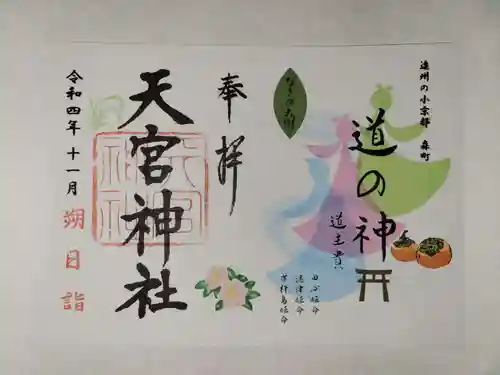 遠州の小京都 森町
道の神
道主貴
田心姫命
湍津姫命
市杵島姫命
なぎの大樹
奉拝
天宮神社
令和四年 十一月
朔日詣